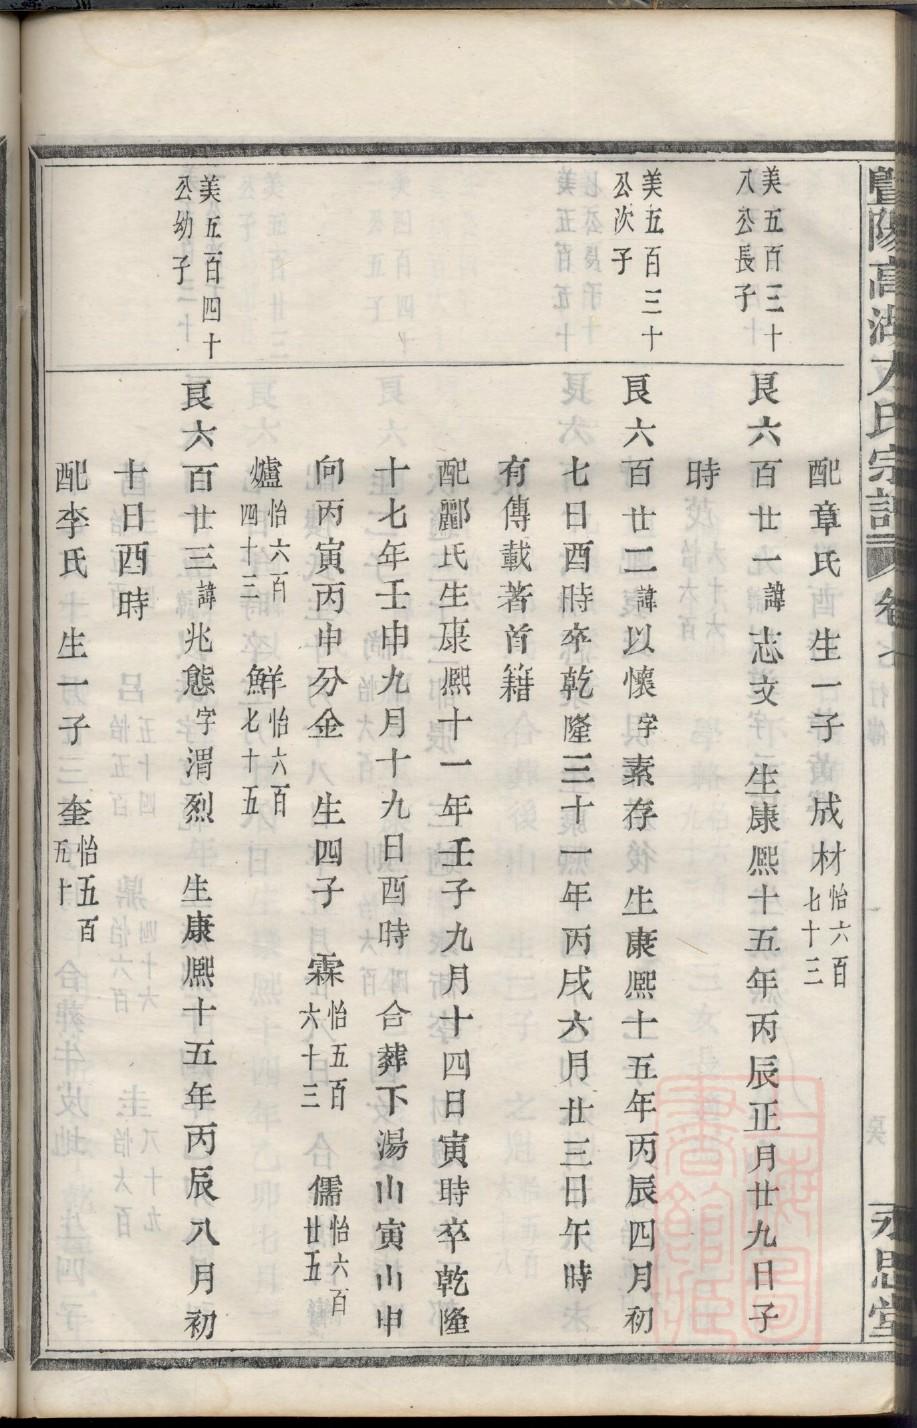 暨陽高湖方氏宗譜 卷七 永思堂
配章氏 生一子 成材怡六百七十三
美五百三十八公長子
艮六百廿一諱志文 生康熙十五年丙辰正月廿九日子
時
美五百三十公次子
艮六百廿二諱以懷字素存 生康熙十五年丙辰四月初
七日酉時卒乾隆三十一年丙戌六月廿三日午時
有傳載著首籍
配酈氏生康熙十一年壬子九月十四日寅時卒乾隆
十七年壬申九月十九日酉時 合葬下湯山寅山申
向丙寅丙申分金 生四子 霖怡五百六十三 儒怡六百廿五
爐怡六百四十三 鮮怡六百七十五
美五百四十公幼子
艮六百廿三諱兆態字渭烈 生康熙十五年丙辰八月初
十日酉時
配李氏 生一子 奎怡五百五十